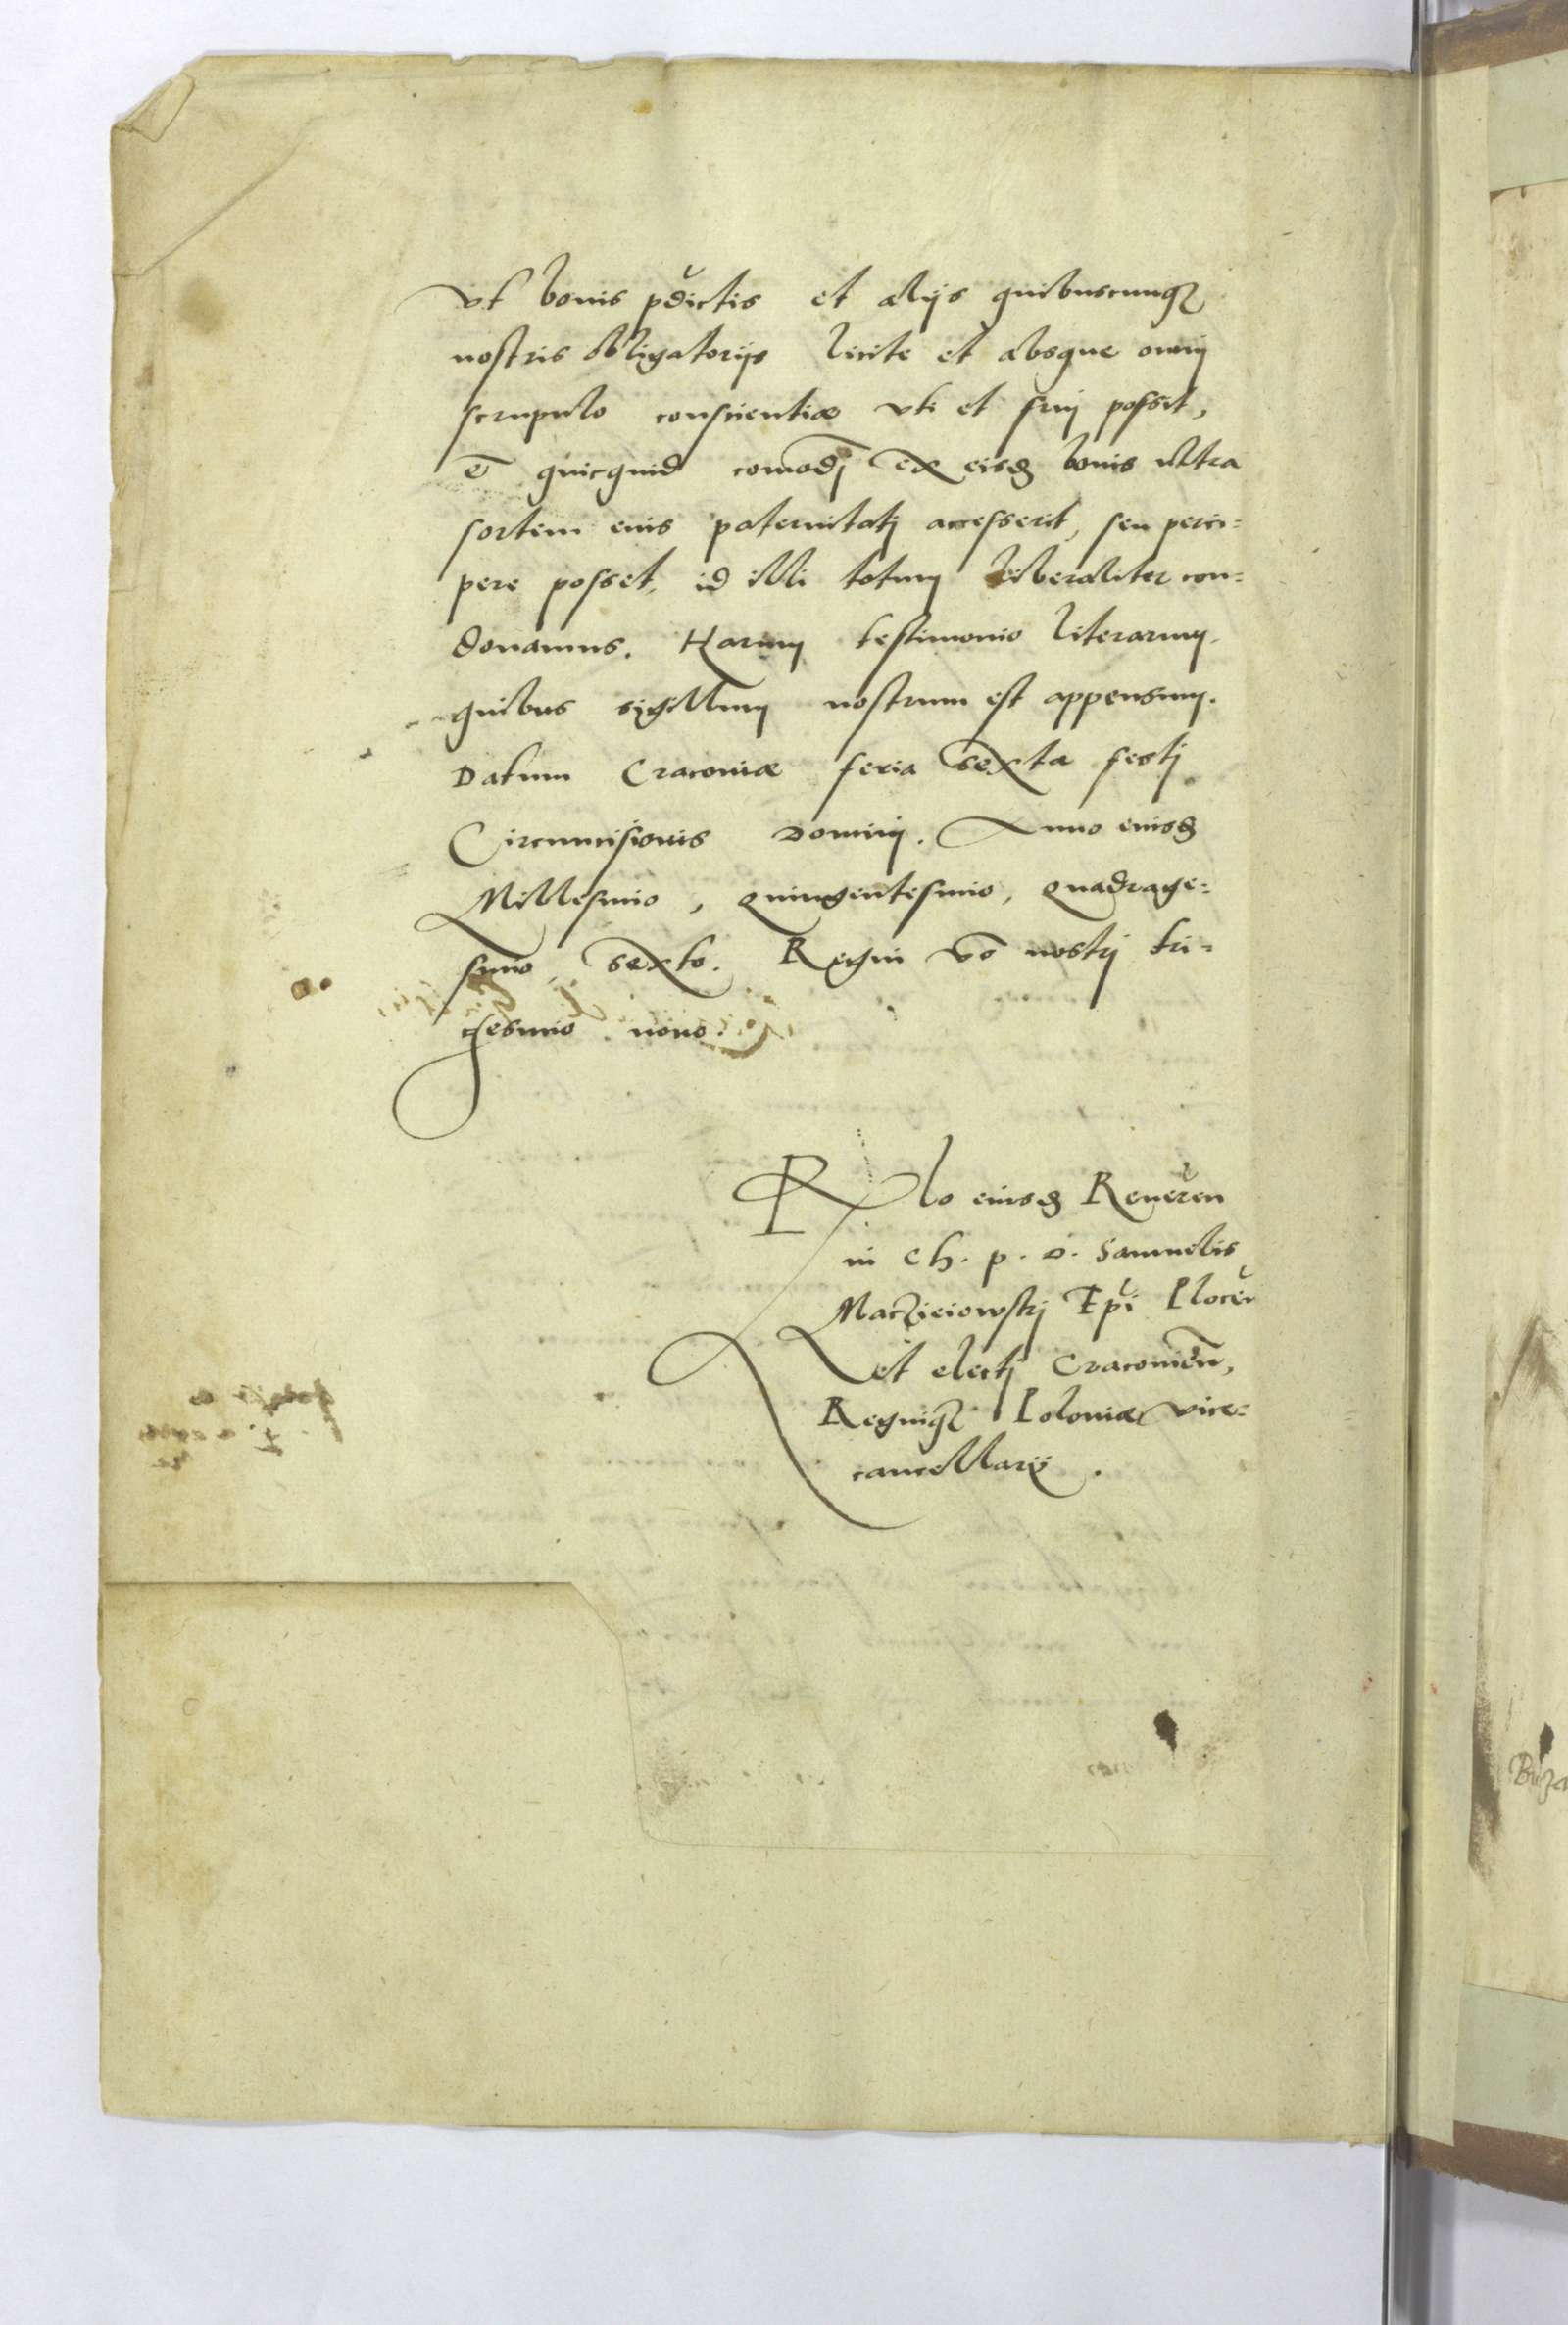 vt bonis pdictis et alijs quibuscunqꝫ
nostris obligatorijs licite et absque omnj
scrupulo conscientiæ vti et fruj possit,
et quicquid comodj ex eisdꝫ bonis vltra
sortem eius paternitatj accesserit, seu perci=
pere posset, id illi totum liberaliter con=
donamus. Harum testimonio literarum
quibus sigillum nostrum est appensum.
Datum Cracoviæ feria sexta festj
Circumcisionis Dominj. Anno eiusdꝫ
Millesimo, quingentesimo, quadrage=
simo sexto. Regni vō nostrj tri=
gesimo nono.
Rlo eiusdꝫ Reveren
in Ch. p. D. Samuelis
Maczieiowskj Epi Plocen
et electj Cracovien̄,
Regniqꝫ Poloniæ vice=
cancellarij.